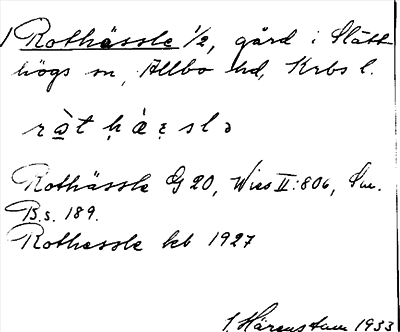 Rothässle 1/2, gård i Slätt-
högs sn, Allbo hd, Krbs l.
Rothässle G 20, Wies II:806, Sm.
B.s. 189.
Rothessle kb 1927
J. Härenstam 1933